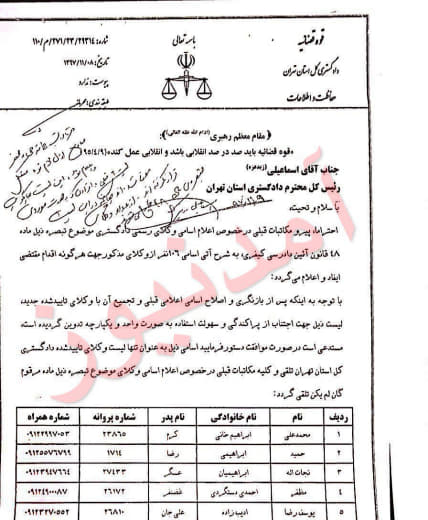 باسمه تعالی
قوه قضائیه
دادگستری کل استان تهران
حفاظت و اطلاعات
شماره: ۱۱۰/م/۲۷۱/۲۳/۲۹۳۱۴
تاریخ: ۱۳۹۷/۱۱/۰۸
پیوست: ندارد
طبقه بندی: محرمانه
مقام معظم رهبری (ادام الله ظله العالی):
«قوه قضائیه باید صد در صد انقلابی باشد و انقلابی عمل کند» (۹۵/۴/۹)
جناب آقای اسماعیلی (زیدعزه)
رئیس کل محترم دادگستری استان تهران
با سلام و تحیت؛
احتراما، پیرو مکاتبات قبلی درخصوص اعلام اسامی وکلای رسمی دادگستری موضوع تبصره ذیل ماده
۴۸ قانون آئین دادرسی کیفری، به شرح آتی اسامی ۱۰۶نفر از وکلای مذکور جهت هرگونه اقدام مقتضی
ایفاد و اعلام می گردد؛
با توجه به اینکه پس از بازنگری و اصلاح اسامی اعلامی قبلی و تجمیع آن با وکلای تاییدشده جدید،
لیست ذیل جهت اجتناب از پراکندگی و سهولت استفاده به صورت واحد و یکپارچه تدوین گردیده است،
مستدعی است درصورت موافقت دستور فرمایید اسامی ذیل به عنوان تنها لیست وکلای تاییدشده دادگستری
کل استان تهران تلقی و کلیه مکاتبات قبلی درخصوص اعلام اسامی وکلای موضوع تبصره ذیل ماده مرقوم
کان لم یکن تلقی گردد:
ردیف نام نام خانوادگی نام پدر شماره پروانه شماره همراه
۱ محمدعلی ابراهیم خانی کرم ۲۳۸۶۵ ۰۹۱۲۲۹۹۷۰۵۳
۲ حمید ابراهیمی رضا ۱۷۱۴ ۰۹۱۲۵۵۷۶۷۹۹
۳ نجات اله ابراهیمیان عسگر ۲۷۴۳۳ ۰۹۱۲۳۹۴۷۶۶۴
۴ مظفر احمدی دستگردی غضنفر ۲۶۱۷۲ ۰۹۱۲۴۹۰۰۰۸۷
۵ یوسف رضا ادیب زاده علی جان ۲۶۸۱۰ ۰۹۱۲۳۲۷۰۵۵۲
آمدنیوز